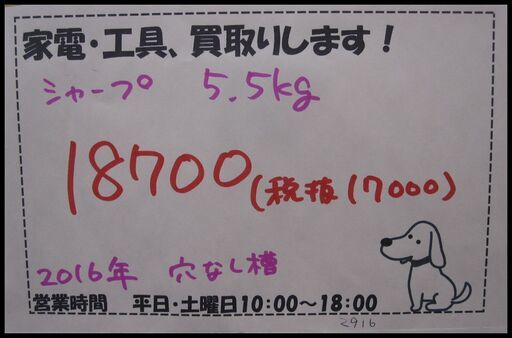 家電・工具、買取りします！
シャープ 5.5kg
18700(税抜17000)
2016年 穴なし槽
営業時間 平日・土曜日10:00～18:00
2916